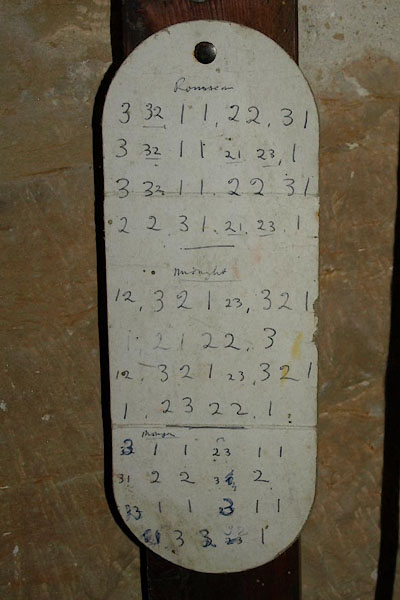 3 32 1 1. 22. 31
3 32 1 1 21 23. 1
3 32 1 1. 2 2 31
2 2. 31. 21. 23. 1
Midnight
12. 3 2 1 23, 3 2 1
1. 2 1 2 2. 3
12. 3 2 1 23, 3 2 1
1. 2 3 2 2. 1.
1 1 23 1 1
31 2 2 2
33 1 1 3 1 1
3 3 23 1